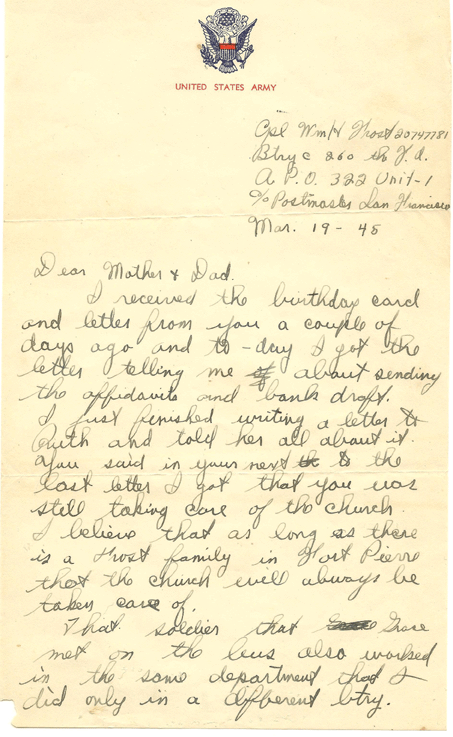 UNITED STATES ARMY
Cpl Wm H Frost 20747781
Btry C 260 th F.A.
A P.O. 322 Unit-1
c/o Postmaster San Francisco
Mar. 19 - 45
Dear Mother & Dad.
I received the birthday card
and letter from you a couple of
days ago and to-day I got the
letter telling me about sending
the affidavits and bank draft.
I just finished writing a letter to
Ruth and told her all about it.
You said in your next to the
last letter I got that you was
still taking care of the church.
I believe that as long as there
is a Frost family in Fort Pierre
that the church will always be
taken care of.
That soldier that Grace
met on the bus also worked
in the same department that I
did only in a different btry.